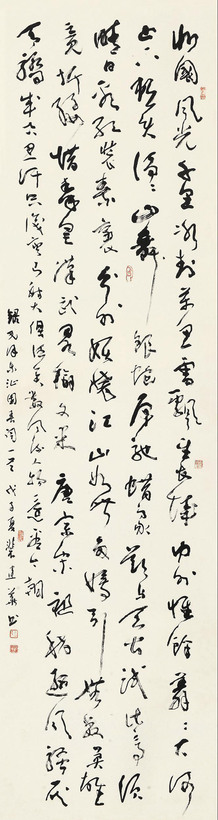 北國風光千里冰封萬里雪飄望長城內外惟餘莽莽大河
上下頓失滔滔山舞銀蛇原馳蠟象欲與天公試比高須
晴日看紅裝素裹分外妖嬈江山如此多嬌引無數英雄
競折腰惜秦皇漢武略輸文采唐宗宋祖稍遜風騷一代
天驕成吉思汗只識彎弓射大雕俱往矣數風流人物還看今朝
錄毛澤東沁園春詞一首戊子夏建華書